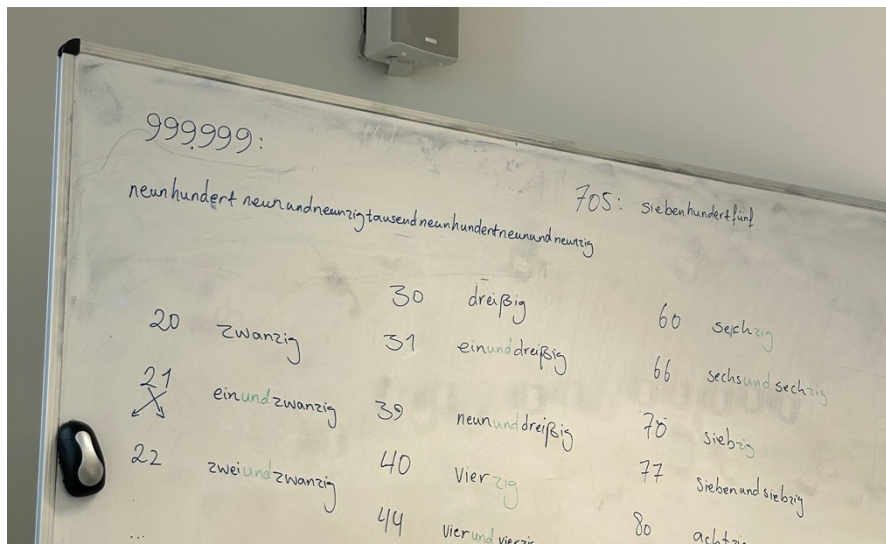 999.999:
neunhundert neunundneunzigtausendneunhundertneunundneunzig
705: siebenhundertfünf
20 zwanzig
21 einundzwanzig
22 zweiundzwanzig
...
30 dreißig
31 einunddreißig
39 neununddreißig
40 vierzig
44 vierundvierzig
60 sechzig
66 sechsundsechzig
70 siebzig
77 siebenundsiebzig
80 achtzig